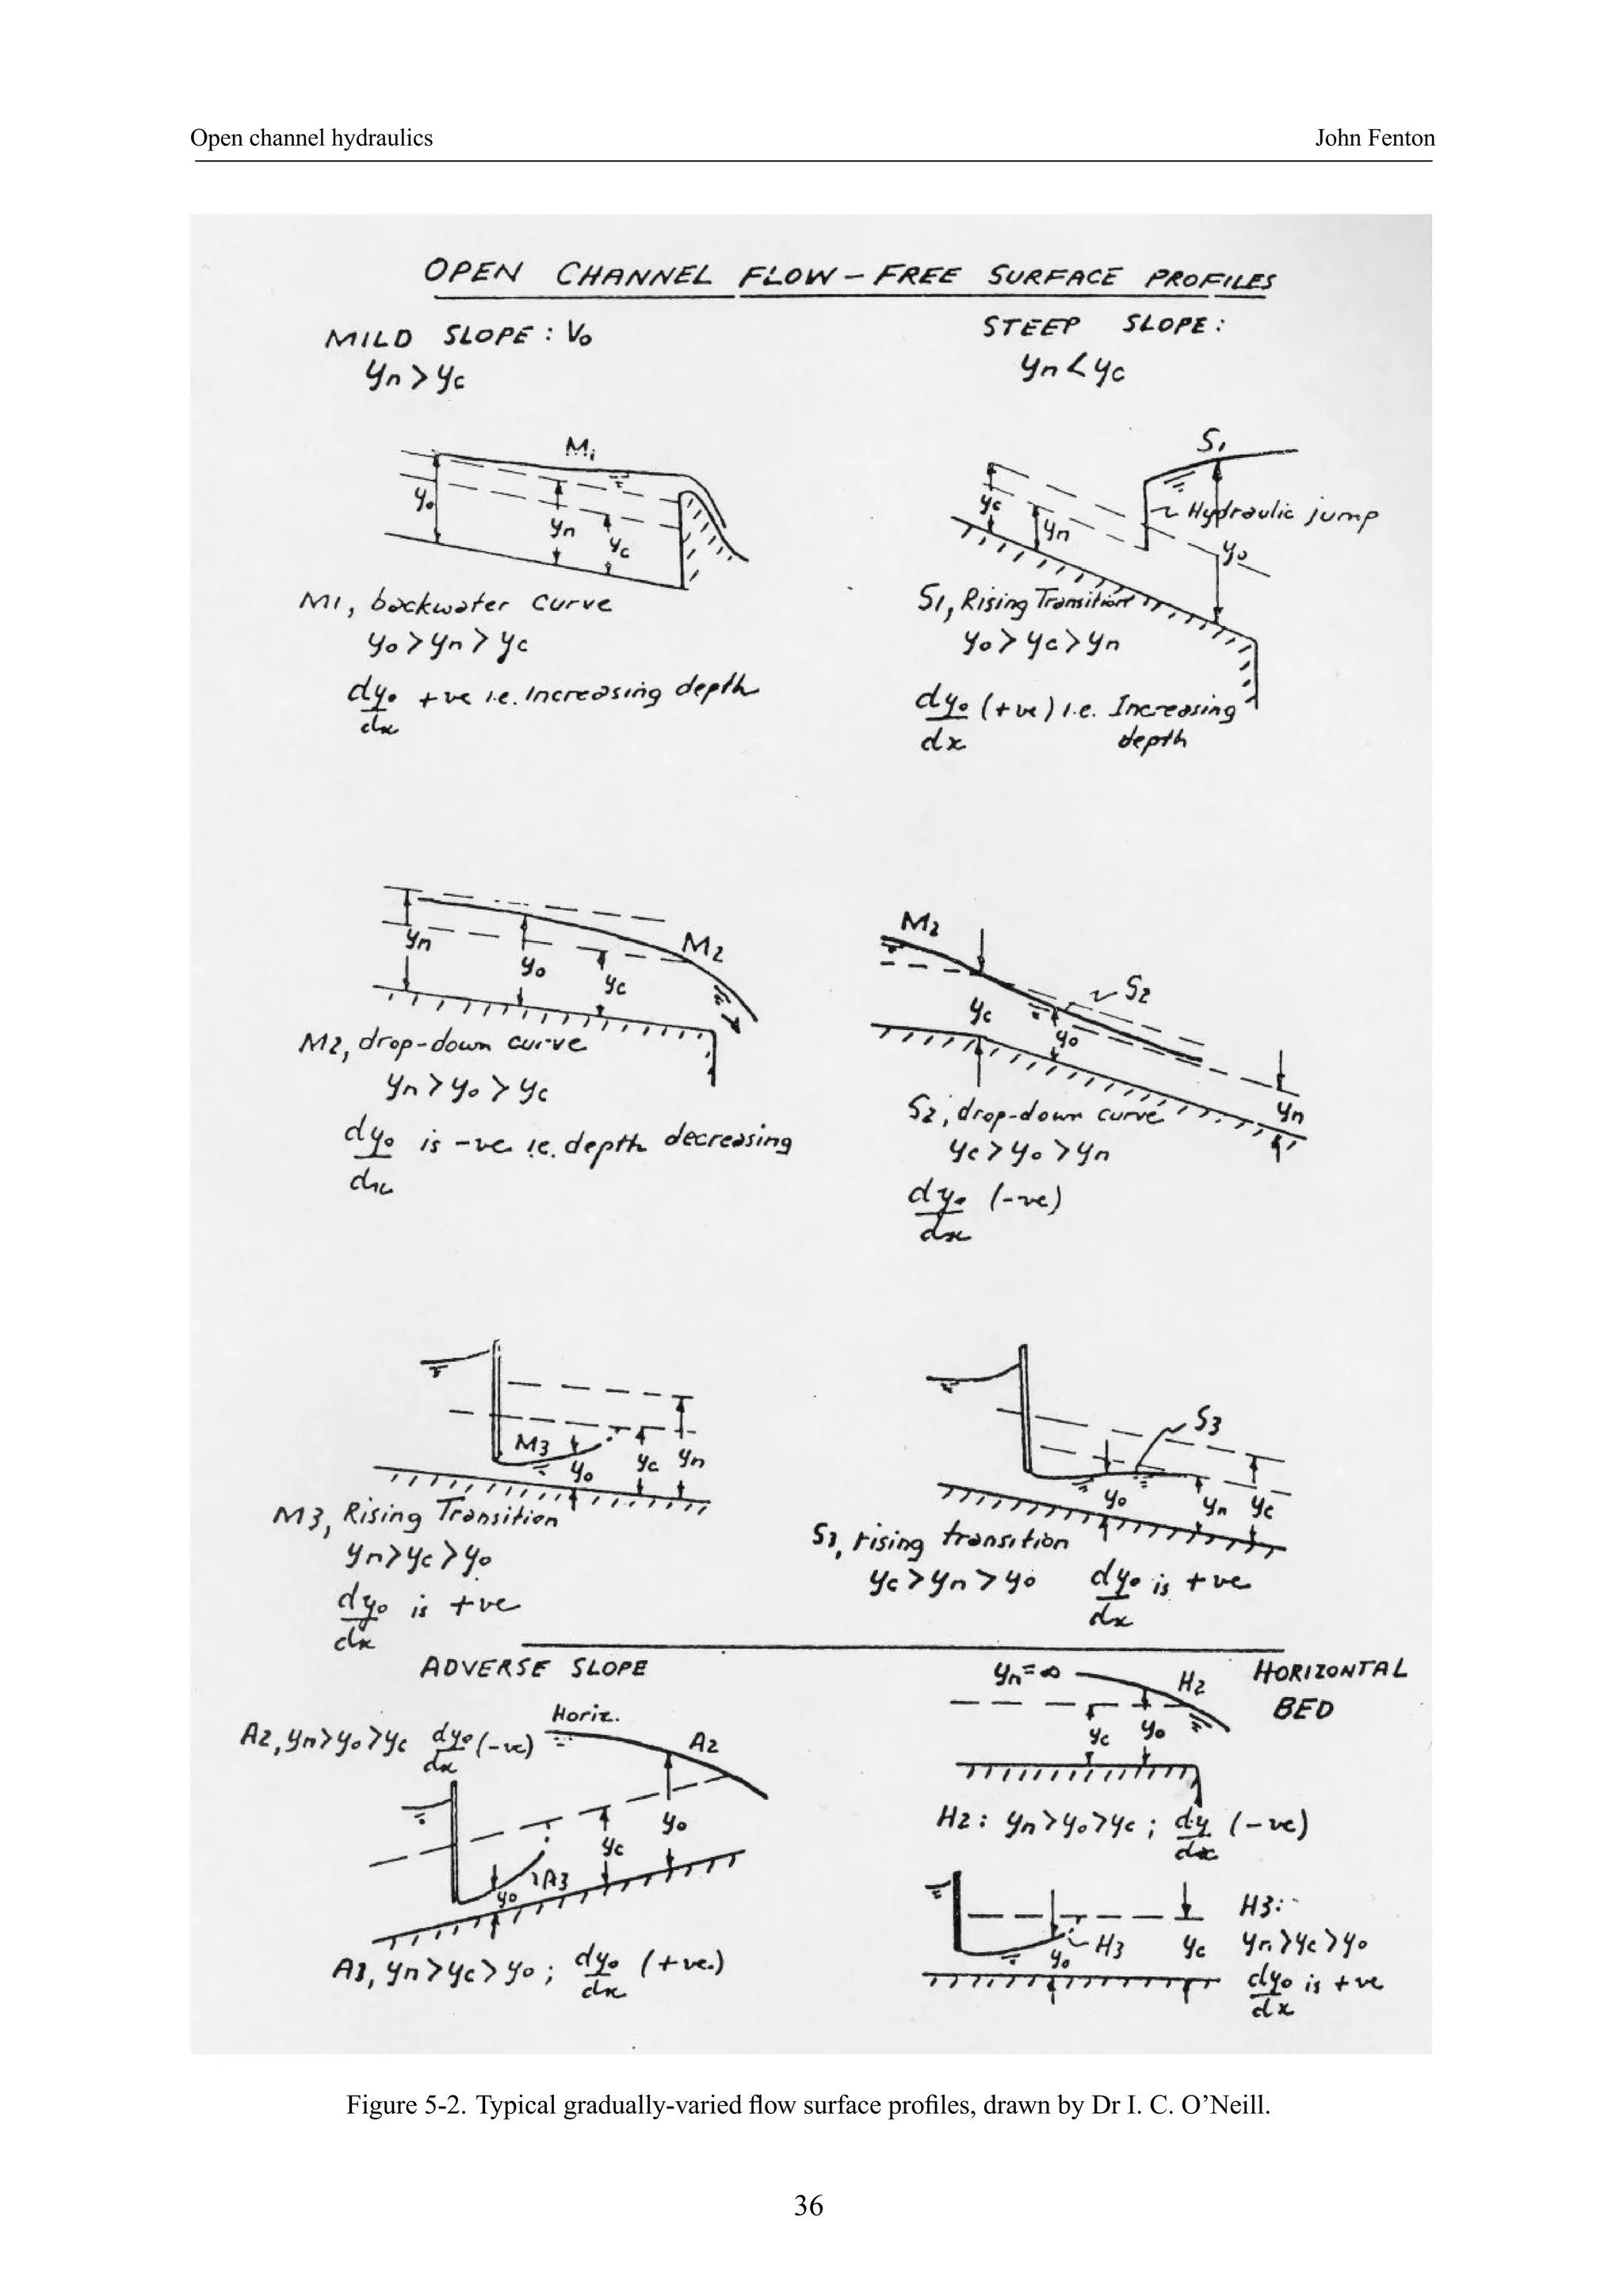 Open channel hydraulics
John Fenton
OPEN CHANNEL FLOW – FREE SURFACE PROFILES
MILD SLOPE : V₀
yn > yc
STEEP SLOPE :
yn < yc
M₁
y₀
yn
yc
M1, backwater curve
y₀ > yn > yc
dy₀/dx +ve i.e. Increasing depth
S₁
yc
yn
Hydraulic jump
y₀
S1, Rising Transition
y₀ > yc > yn
dy₀/dx (+ve) i.e. Increasing
depth
yn
y₀
yc
M2
M2, drop-down curve
yn > y₀ > yc
dy₀/dx is -ve i.e. depth decreasing
M2
S2
yc
y₀
yn
S2, drop-down curve
yc > y₀ > yn
dy₀/dx (-ve)
M3
y₀
yc
yn
M3, Rising Transition
yn > yc > y₀
dy₀/dx is +ve
S3
y₀
yn
yc
S3, rising transition
yc > yn > y₀
dy₀/dx is +ve
ADVERSE SLOPE
A2, yn > y₀ > yc dy₀/dx (-ve)
Horiz.
A2
y₀
yc
A3
y₀
A3, yn > yc > y₀ ; dy₀/dx (+ve.)
HORIZONTAL
BED
yn = ∞
H2
yc
y₀
H2 : yn > y₀ > yc ; dy/dx (-ve)
H3
y₀
yc
H3:-
yn > yc > y₀
dy₀/dx is +ve
Figure 5-2. Typical gradually-varied flow surface profiles, drawn by Dr I. C. O’Neill.
36